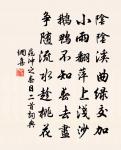 陰陰溪曲綠交加
小雨翻萍上淺沙
鵝鴨不知春去盡
爭隨流水趁桃花
晁沖之春日二首詞典
網喜